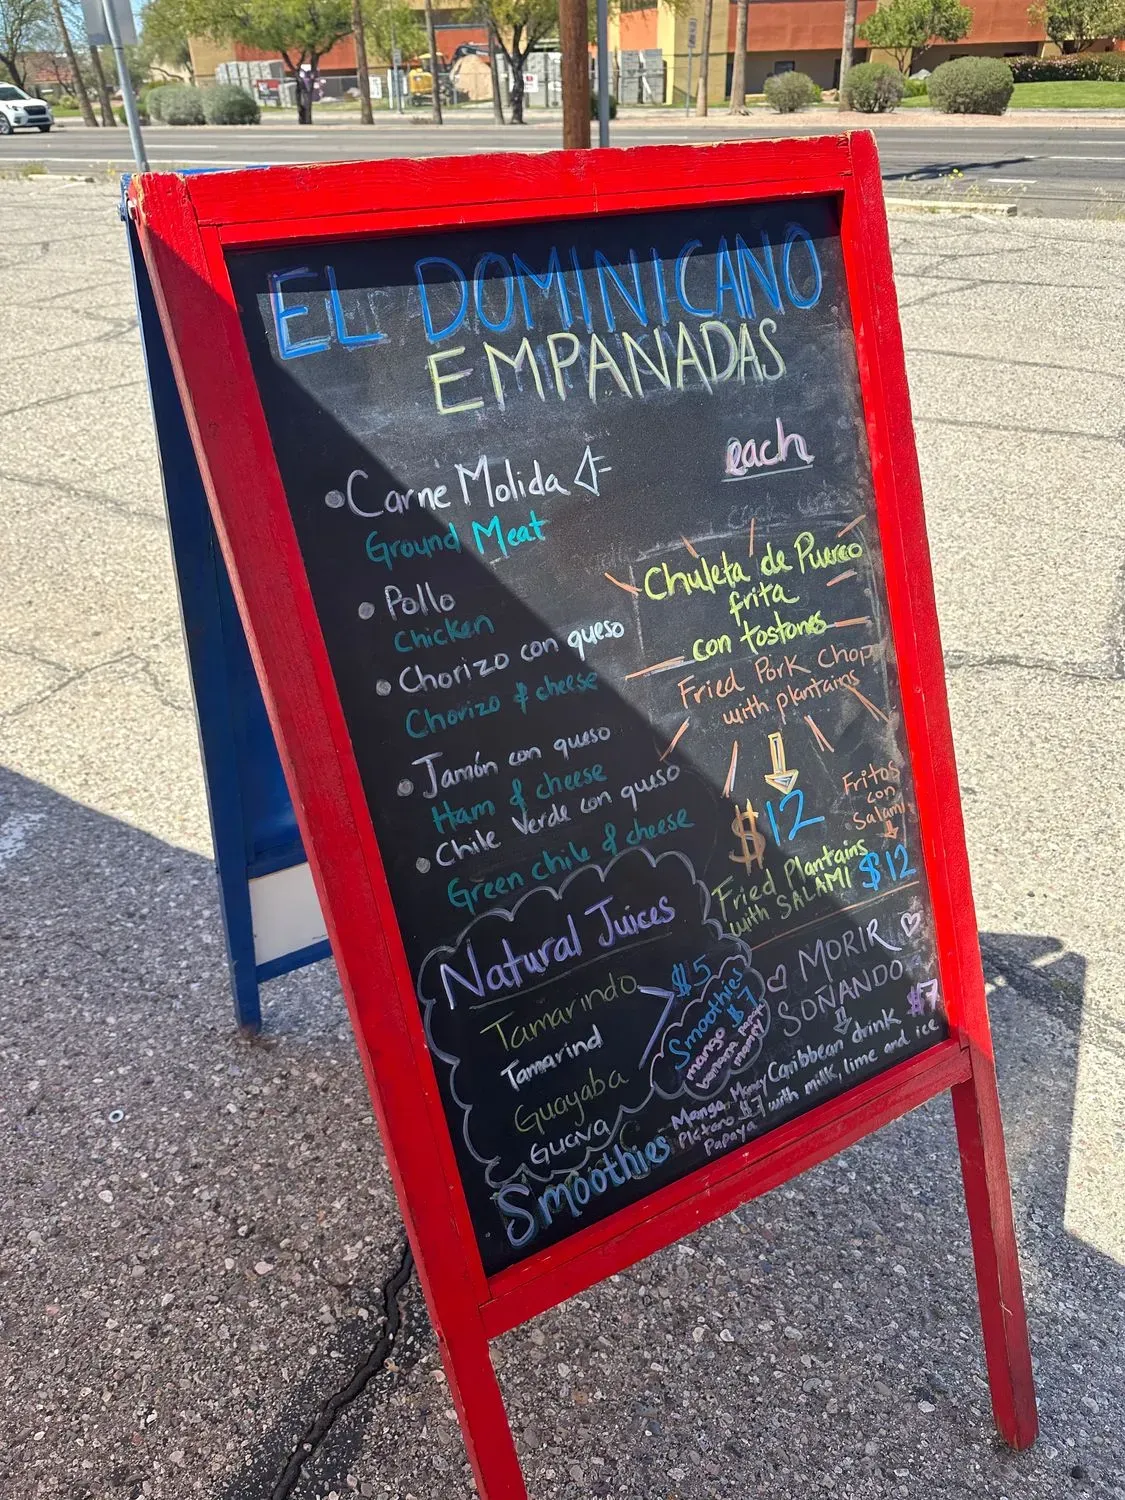 EL DOMINICANO
EMPANADAS
each
Carne Molida
Ground Meat
Pollo
Chicken
Chorizo con queso
Chorizo & cheese
Jamón con queso
Ham & cheese
Chile Verde con queso
Green chile & cheese
Chuleta de Puerco
frita
con tostones
Fried Pork Chop
with plantains
$12
Fritos
con
Salami
Fried Plantains
with SALAMI
$12
Natural Juices
Tamarindo
Tamarind
$5
Guayaba
Guava
Smoothies
$7
mango
banana papaya
mamey
MORIR
SOÑANDO
$7
Caribbean drink
with milk, lime and ice
Smoothies
Mango, Mamey
Plátano $7
Papaya